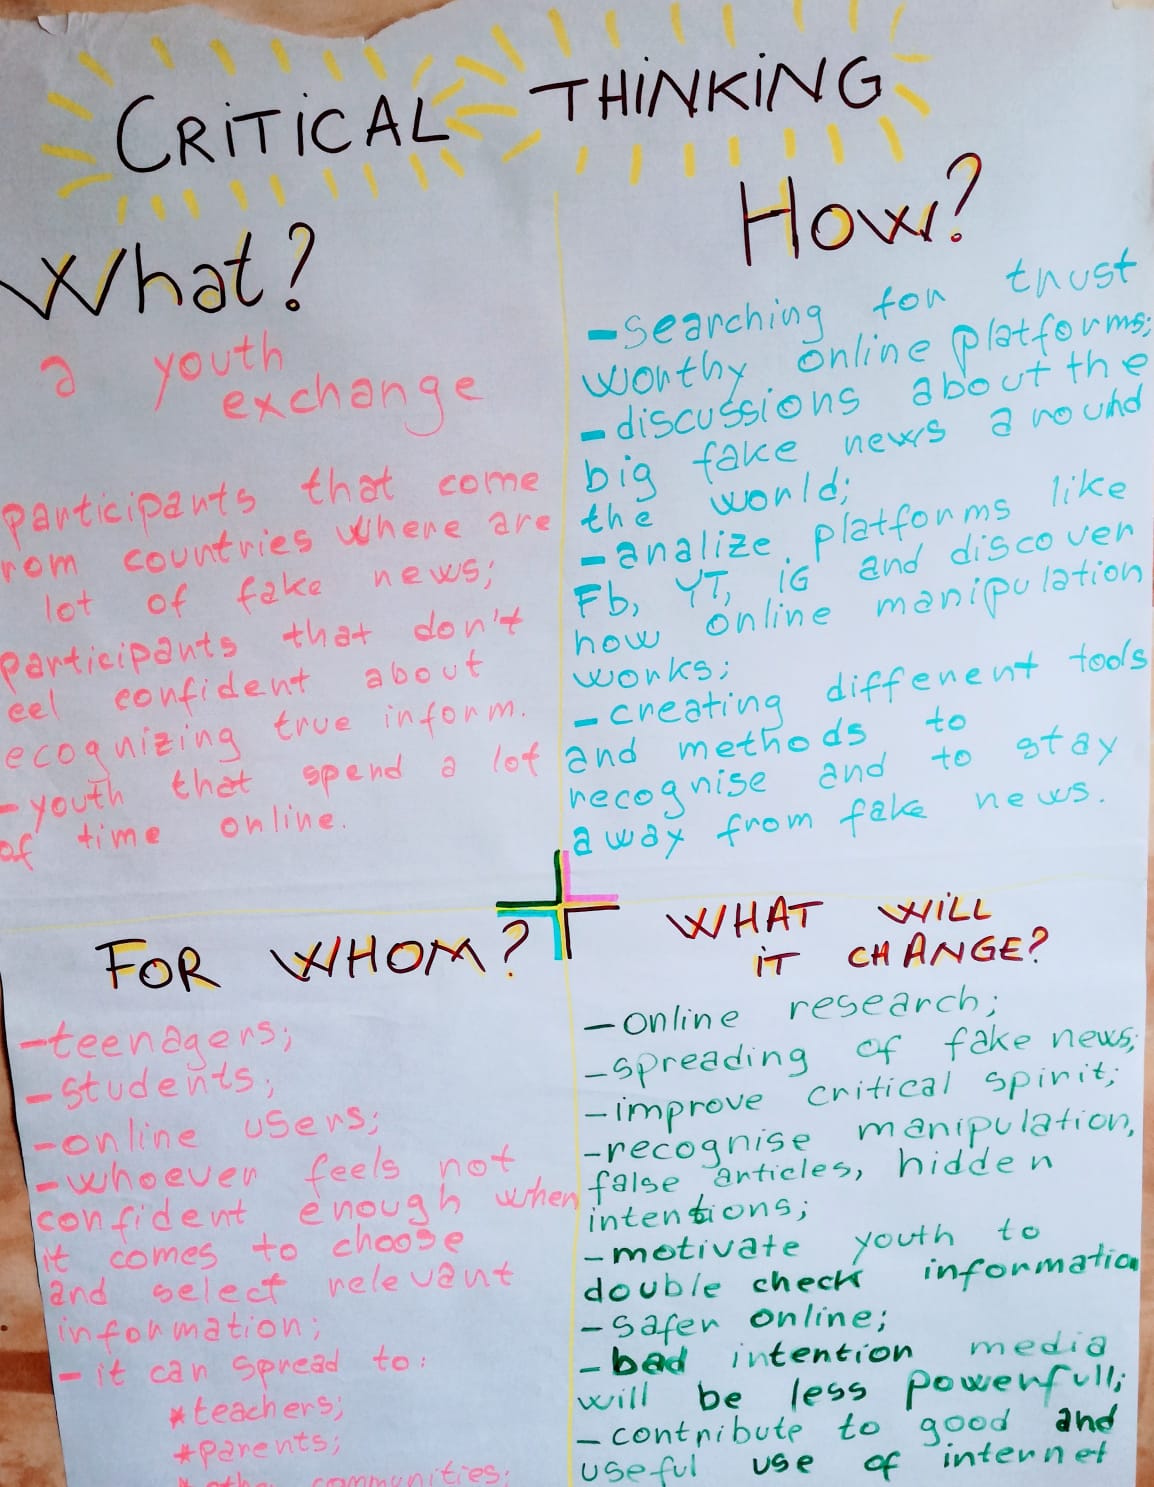 CRITICAL THINKING
What?
a youth
exchange
participants that come
rom countries where are
lot of fake news;
participants that don't
eel confident about
ecognizing true inform.
- youth that spend a lot
of time online.
How?
- searching for trust
worthy online platforms;
- discussions about the
big fake news around
the world;
- analize platforms like
Fb, YT, IG and discover
how online manipulation
works;
- creating different tools
and methods to
recognise and to stay
away from fake news.
FOR WHOM?
- teenagers;
- students;
- online users;
- whoever feels not
confident enough when
it comes to choose
and select relevant
information;
- it can spread to:
* teachers;
* parents;
communities;
WHAT WILL
IT CHANGE?
- online research;
- spreading of fake news;
- improve critical spirit;
- recognise manipulation,
false articles, hidden
intentions;
- motivate youth to
double check informatio
- safer online;
- bad intention media
will be less powerfull;
- contribute to good and
useful use of internet